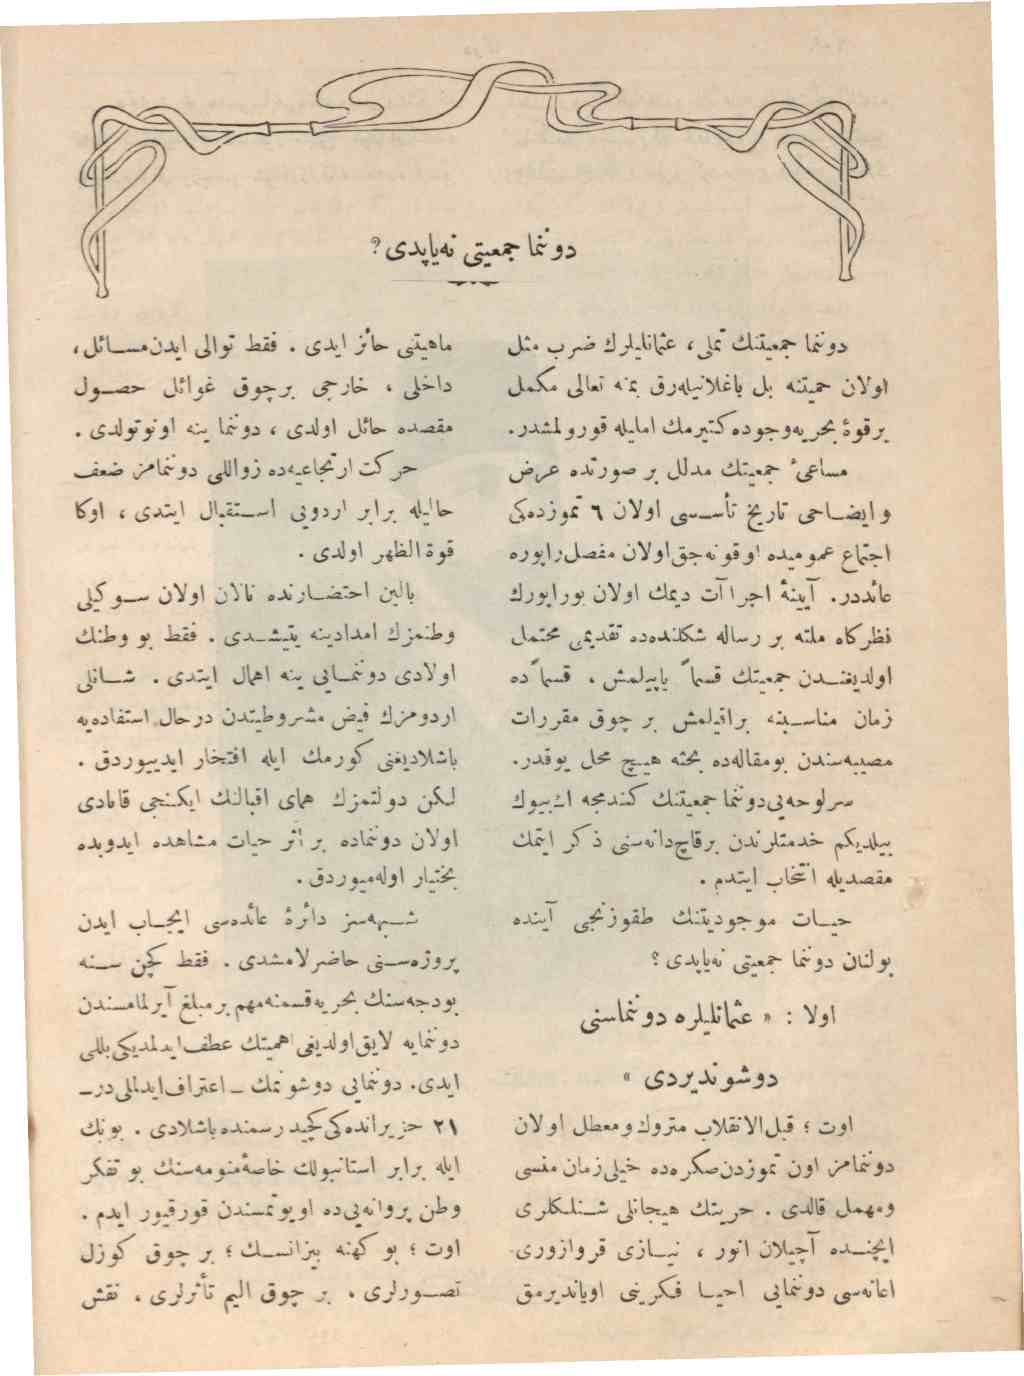 دوننما جمعيتى نه‌ياپدى؟
دوننما جمعيتنك تملى ، عثمانليلرك ضرب مثل
اولان حميتنه بل باغلانيله‌رق بمنه تعالى مكمل
برقوۀ بحريه‌وجوده كتيرمك امليله قورولمشدر.
مساعئ جمعيتك مدلل بر صورتده عرض
و ايضـاحى تاريخ تأسـسى اولان ٦ تموزده‌كى
اجتماع عموميده اوقونه‌جق‌اولان مفصل‌راپوره
عائددر. آيينۀ اجراآت ديمك اولان بوراپورك
نظركاه ملته بر رساله شكلنده‌ده تقديمى محتمل
اولديغنـدن جمعيتك قسماً ياپيلمش ، قسماً ده
زمان مناسـبنه براقيلمش بر چوق مقررات
مصيبه‌سندن بومقاله‌ده بحثه هيـچ محل يوقدر.
سرلوحه‌يى‌دوننما جمعيتنك كندمجه اك‌بيوك
بيلديكم خدمتلرندن برقاچ‌دانه‌سنى ذكر ايتمك
مقصديله انتخاب ايتدم .
حيـات موجوديتنك طقوزنجى آينده
بولنان دوننما جمعيتى نه‌ياپدى ؟
اولا : « عثمانليلره دوننماسنى
دوشونديردى »
اوت ؛ قبل‌الانقلاب متروك ومعطل اولان
دوننمامز اون تموزدن‌صكره‌ده خيلى‌زمان منسى
ومهمل قالدى . حريتك هيجانلى شـنلـكلرى
ايچنـده آچيلان انور ، نيـازى قروازورى
اعانه‌سى دوننمايى احيـا فـكرينى اوياندیرمق
ماهيتنى حائز ايدى . فقط توالى ايدن‌مسـائل،
داخلى ، خارجى برچوق غوائل حصـول
مقصده حائل اولدى ، دوننما ينه اونوتولدى .
حركت ارتجاعيه‌ده زواللى دوننمامز ضعف
حاليله برابر اردويى اسـتقبال ايتدى ، اوكا
قوة الظهر اولدى .
بالين احتضـارنده نالان اولان سـوكيلى
وطنمزك امدادينه يتيشـدى . فقط بو وطنك
اولادى دوننمـايى ينه اهمال ايتدى . شـانلى
اردومزك فيض مشروطيتدن درحال استفاده‌يه
باشلاديغنى كورمك ايله افتخار ايدييوردق .
لـكن دولتمزك هماى اقبالنك ايكـنجى قانادى
اولان دوننماده بر اثر حيات مشاهده ايدوبده
بختيار اوله‌ميوردق .
شـبهه‌سز دائرۀ عائده‌سى ايجـاب ايدن
پروژه‌سـنى حاضرلامشدى . فقط كچن سـنه
بودجه‌سنك بحريه‌قسمنه‌مهم برمبلغ آيرلمامسندن
دوننمايه لايق‌اولديغى اهميتك عطف‌ايدلمديكى‌بللى
ايدى. دوننمايى دوشونمك ـ اعتراف‌ايدلملى‌در ـ
٢١ حزيرانده‌كى‌كچيدرسمنده‌باشلادى . بونك
ايله برابر استانبولك خاصۀمنومه‌سنك بو تفكر
وطن پروانه‌يى‌ده اويوتمسندن قورقيور ايدم .
اوت ؛ بو كهنه بيزانسـك ؛ بر چوق كوزل
تصـورلرى ، بر چوق اليم تأثرلرى ، نقش